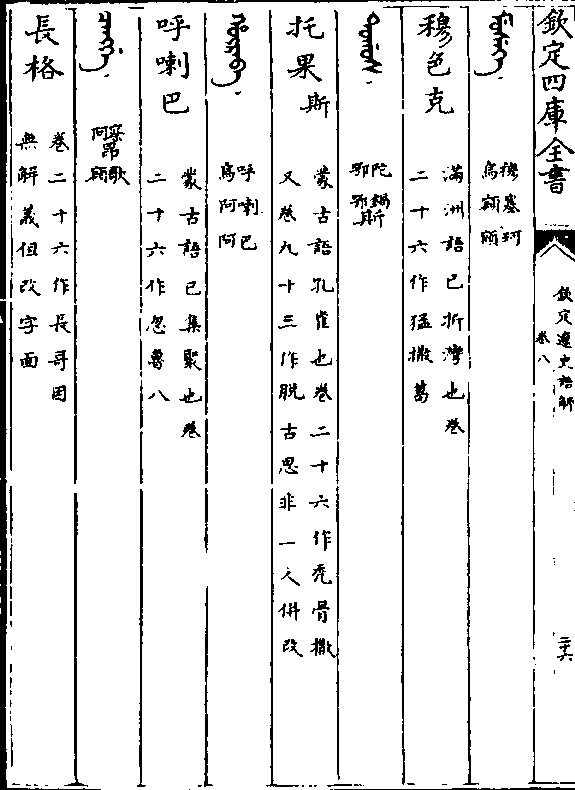 欽定四庫全書
欽定遼史語解
卷八
二十六
穆塞珂
烏額額
穆色克
滿洲語已折灣也卷
二十六作猛撒葛
陀鍋斯
鄂鄂斯
托果斯
蒙古語孔雀也卷二十六作禿骨撒
又卷九十三作脱古思非一人併改
呼喇巴
烏阿阿
呼喇巴
蒙古語已集聚也卷
二十六作忽魯八
阿昂額
長格
卷二十六作長哥因
無解義但改字面